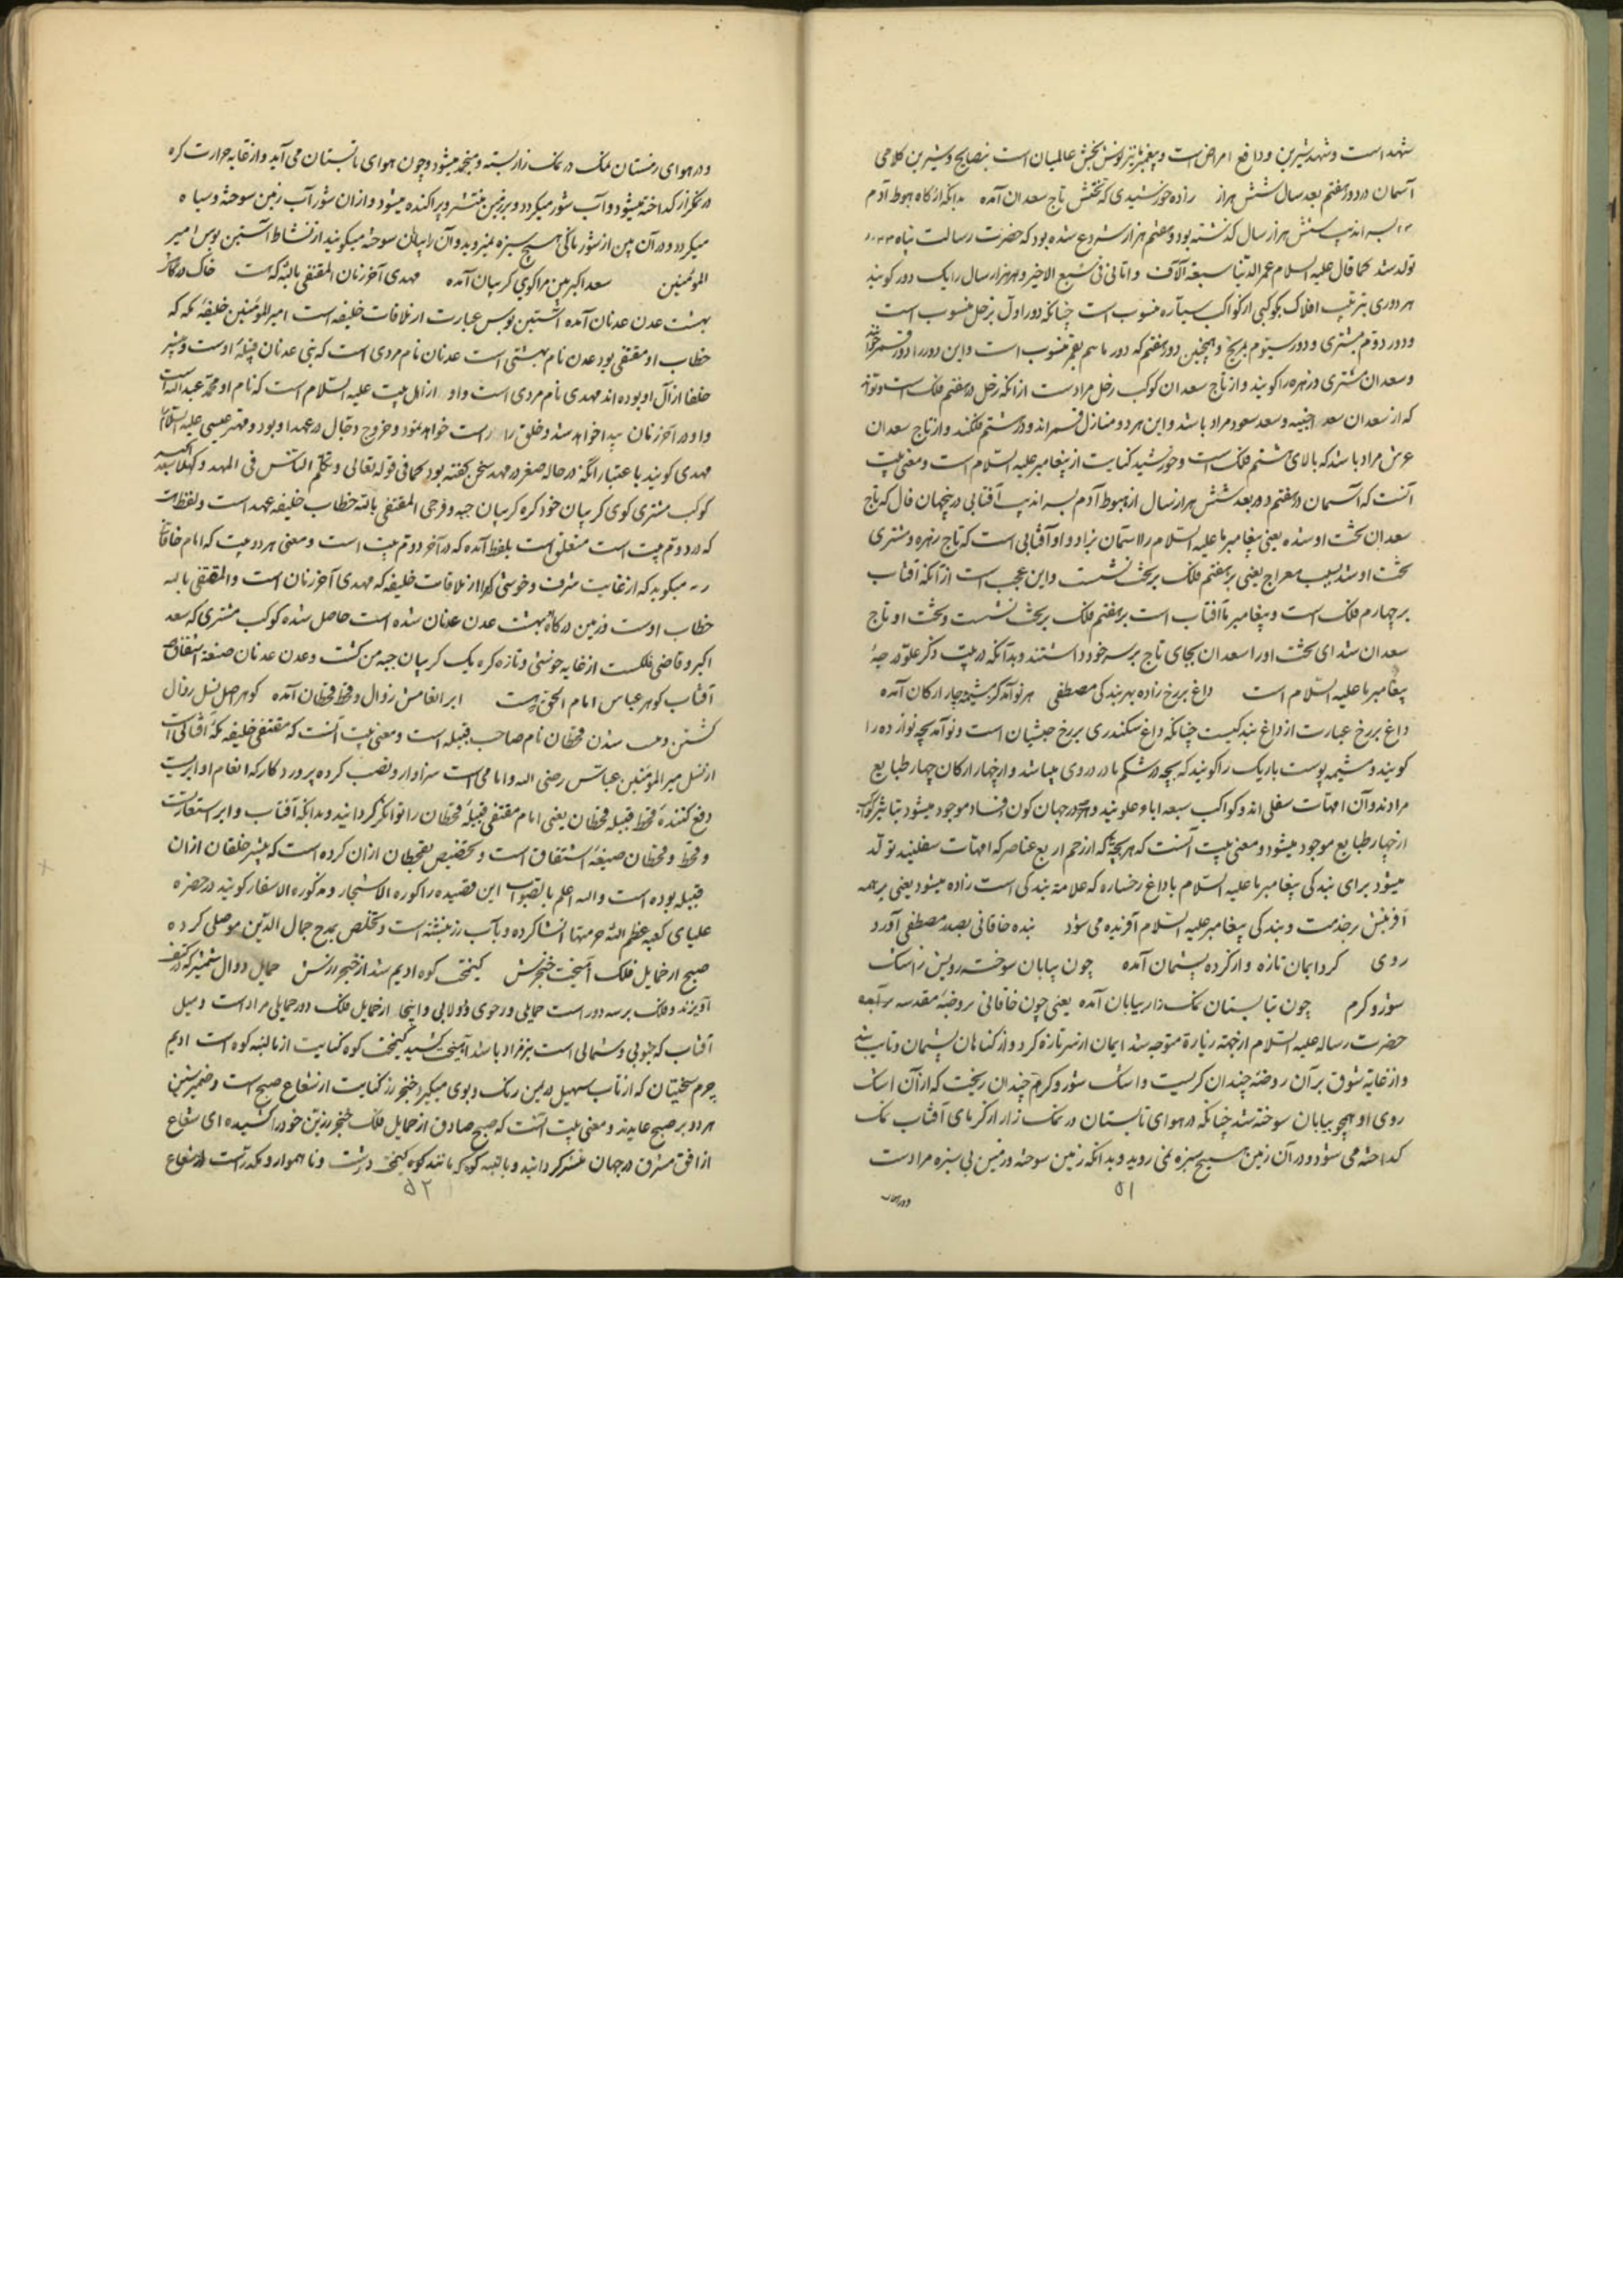 شهد است و شهد شیرین و دافع امراض است و پیغمبر نیز نوش بخش عالمیان است بنصایح و شیرین کلامی
آسمان در دور هفتم بعد سال شش هزار زاده خورشیدی که تختش تاج سعدان آمده بدانکه از کاه هبوط آدم
شش هزار سال کذشته بود و هفتم هزار شروع شده بود که حضرت رسالت پناه
تولد شد کما قال علیه السلام عمر الدنیا سبعة آلاف و انا فی السبع الاخیر و هر هزار سال را یک دور کویند
هر دوری بترتیب افلاک بکوکبی از کواکب سیاره منسوب است چنانکه دور اول بزحل منسوب است
و دور دوم بمشتری و دور سیوم بمریخ و همچنین دور هفتم که دور ماست هم بقمر منسوب است و این دور را دور قمر خوانند
و سعدان مشتری و زهره را کویند و از تاج سعدان کوکب زحل مراد است از انکه زحل در هفتم فلک است و تواند
که از سعدان سعد اخبیه و سعد سعود مراد باشد و این هر دو منازل قمراند و در هشتم فلکند و از تاج سعدان
عرش مراد باشد که بالای هشتم فلک است و خورشید کنایت از پیغامبر علیه السلام است و معنی بیت
آنست که آسمان در هفتم دور بعد شش هزار سال از هبوط آدم آفتابی در جهان که تاج
سعدان تخت او شده یعنی پیغامبر ما علیه السلام را آسمان بزاد و او آفتابی است که تاج زهره و مشتری
تخت او شد بسبب معراج یعنی بر هفتم فلک بر تخت نشست و این عجب است از آنکه آفتاب
بر چهارم فلک است و پیغامبر ما آفتاب است بر هفتم فلک بر تخت نشست و تخت او تاج
سعدان شد ای تخت او را سعدان بجای تاج بر سر خود داشتند و بدآنکه در بیت ذکر علو درجهٔ
پیغامبر ما علیه السلام است داغ بر رخ زاده بهر بندکی مصطفی هر نوآمد کز مشیمه چار ارکان آمده
داغ بر رخ عبارت از داغ بندکیست چنانکه داغ سکندری بر رخ حبشیان است و نوآمد بچه نوزاده را
کویند و مشیمه پوست باریک را کویند که بچه در شکم مادر در وی میباشد و از چهار ارکان چهار طبایع
مرادند و آن امهات سفلی اند و کواکب سبعه اباء علویند و هرچه در جهان کون و فساد موجود میشود بتاثیر کواکب
از چهار طبایع موجود میشود و معنی بیت آنست که هر بچه که از رحم اربع عناصر که امهات سفلیند تولد
میشود برای بندکی پیغامبر ما علیه السلام با داغ رخساره که علامت بندکی است زاده میشود یعنی بر همه
آفرینش بر خدمت و بندکی پیغامبر علیه السلام آفریده می شود بنده خاقانی بصدر مصطفی آورد
روی کرد ایمان تازه و از کرده پشیمان آمده چون بیابان سوخته رویش ز اشک
شور و کرم چون بتابستان نمک زار بیابان آمده یعنی چون خاقانی بروضهٔ مقدسه
حضرت رساله علیه السلام از جهة زیارة متوجه شد ایمان از سر تازه کرد و از کناهان پشیمان و تایب شد
و از غایة شوق بر آن روضه چندان کریست و اشک شور و کرم چندان ریخت که از آن اشک
روی او همچو بیابان سوخته شد چنانکه در هوای تابستان در نمک زار از کرمای آفتاب نمک
کداخته می شود و در آن زمین هیچ سبزه نمی روید و بدانکه زمین سوخته و زمین بی سبزه مراد است
۵۱
و در هوای زمستان نمک در نمک زار بسته و منجمد میشود و چون هوای تابستان می آید و از غایة حرارت کره
در نمکزار کداخته میشود و آب شور میکردد و بر زمین منتشر و پراکنده میشود و از آن شور آب زمین سوخته و سیاه
میکردد و در آن زمین از شورناکی هیچ سبزه نمیروید و آن را بیابان سوخته میکویند از نشاط آستین بوس امیر
المؤمنین سعد اکبر بین مرا کوی کریبان آمده مهدی آخر زمان المقتفی بالله که هست خاک درکاهش
بهشت عدن عدنان آمده آستین بوس عبارت از ملاقات خلیفه است امیر المؤمنین خلیفهٔ مکه که
خطاب او مقتفی بود عدن نام بهشتی است عدنان نام مردی است که بنی عدنان قبیلهٔ اوست و بیشتر
خلفا از آل او بوده اند مهدی نام مردی است و او از اهل بیت علیه السلام است که نام او محمد عبدالله است
و او در آخر زمان پیدا خواهد شد و خلق را راه راست خواهد نمود و خروج دجال در عهد او بود و مهتر عیسی علیه السلام
مهدی کویند باعتبار انکه در حاله صغر در مهد سخن کفته بود کما فی قوله تعالی و یکلم الناس فی المهد و کهلا سعد اکبر
کوکب مشتری کوی کریبان خود کره کریبان جبه و فرجی المقتفی بالله خطاب خلیفه عهد است و لفظ هست
که در دوم بیت است متعلق است بلفظ آمده که در آخر دوم بیت است و معنی هر دو بیت که امام خاقانی
میکوید که از غایت شرف و خوشی که مرا از ملاقات خلیفه که مهدی آخر زمان است و المقتفی بالله
خطاب اوست و زمین درکاه بهشت عدن عدنان شده است حاصل شده کوکب مشتری که سعد
اکبر و قاضی فلکست از غایه خوشی و تازه کره یک کریبان جبه من کشت و عدن عدنان صنعة اشتقاق
آفتاب کوهر عباس امام الحق که هست ابر انعامش زوال قحط قحطان آمده کوهر اصل نسل زوال
کشتن و پست شدن قحطان نام صاحب قبیله است و معنی بیت آنست که مقتفی خلیفه مکه آفتابی است
از نسل میر المؤمنین عباس رضی الله و امامی است سزاوار و نصب کرده پروردکار که انعام او ابریست
دفع کنندهٔ قحط قبیله قحطان یعنی امام مقتفی قبیلهٔ قحطان را توانکر کردانید و بدانکه آفتاب و ابر استعارتست
و قحط و قحطان صیغهٔ اشتقاق است و تخصیص بقحطان از آن کرده است که بیشتر خلقان از آن
قبیله بوده است والله اعلم بالصواب این قصیده را باکوره الاشجار و مذکوره الاسفار کویند در حضره
علیای کعبه عظم الله حرمتها انشا کرده و بآب زر نبشته است و تخلص بمدح جمال الدین موصلی کرده
صبح از حمایل فلک آهیخت خنجرش کیمخت کوه ادیم شد از خنجر زرش حمایل دوال شمشیر که در کتف
آویزند و فلک بر سه دور است حمایلی و رحوی و دولابی و اینجا از حمایل فلک دور حمایلی مراد است و میل
آفتاب که جنوبی و شمالی است نیز مراد باشد آهیخت کشید کیمخت کوه کنایت از بالینه کوه است ادیم
چرم سختیان که از تاب سهیل در یمن رنک و بوی میکیرد خنجر زر کنایت از شعاع صبح است و ضمیر شین
هر دو بر صبح عایدند و معنی بیت آنست که صبح صادق از حمایل فلک خنجر زرین خود را کشیده ای شعاع
از افق مشرق در جهان منتشر کردانید و بالینه کوه که مانند کوه کیمخت درشت و ناهموار و مکدر است از شعاع
۵۲